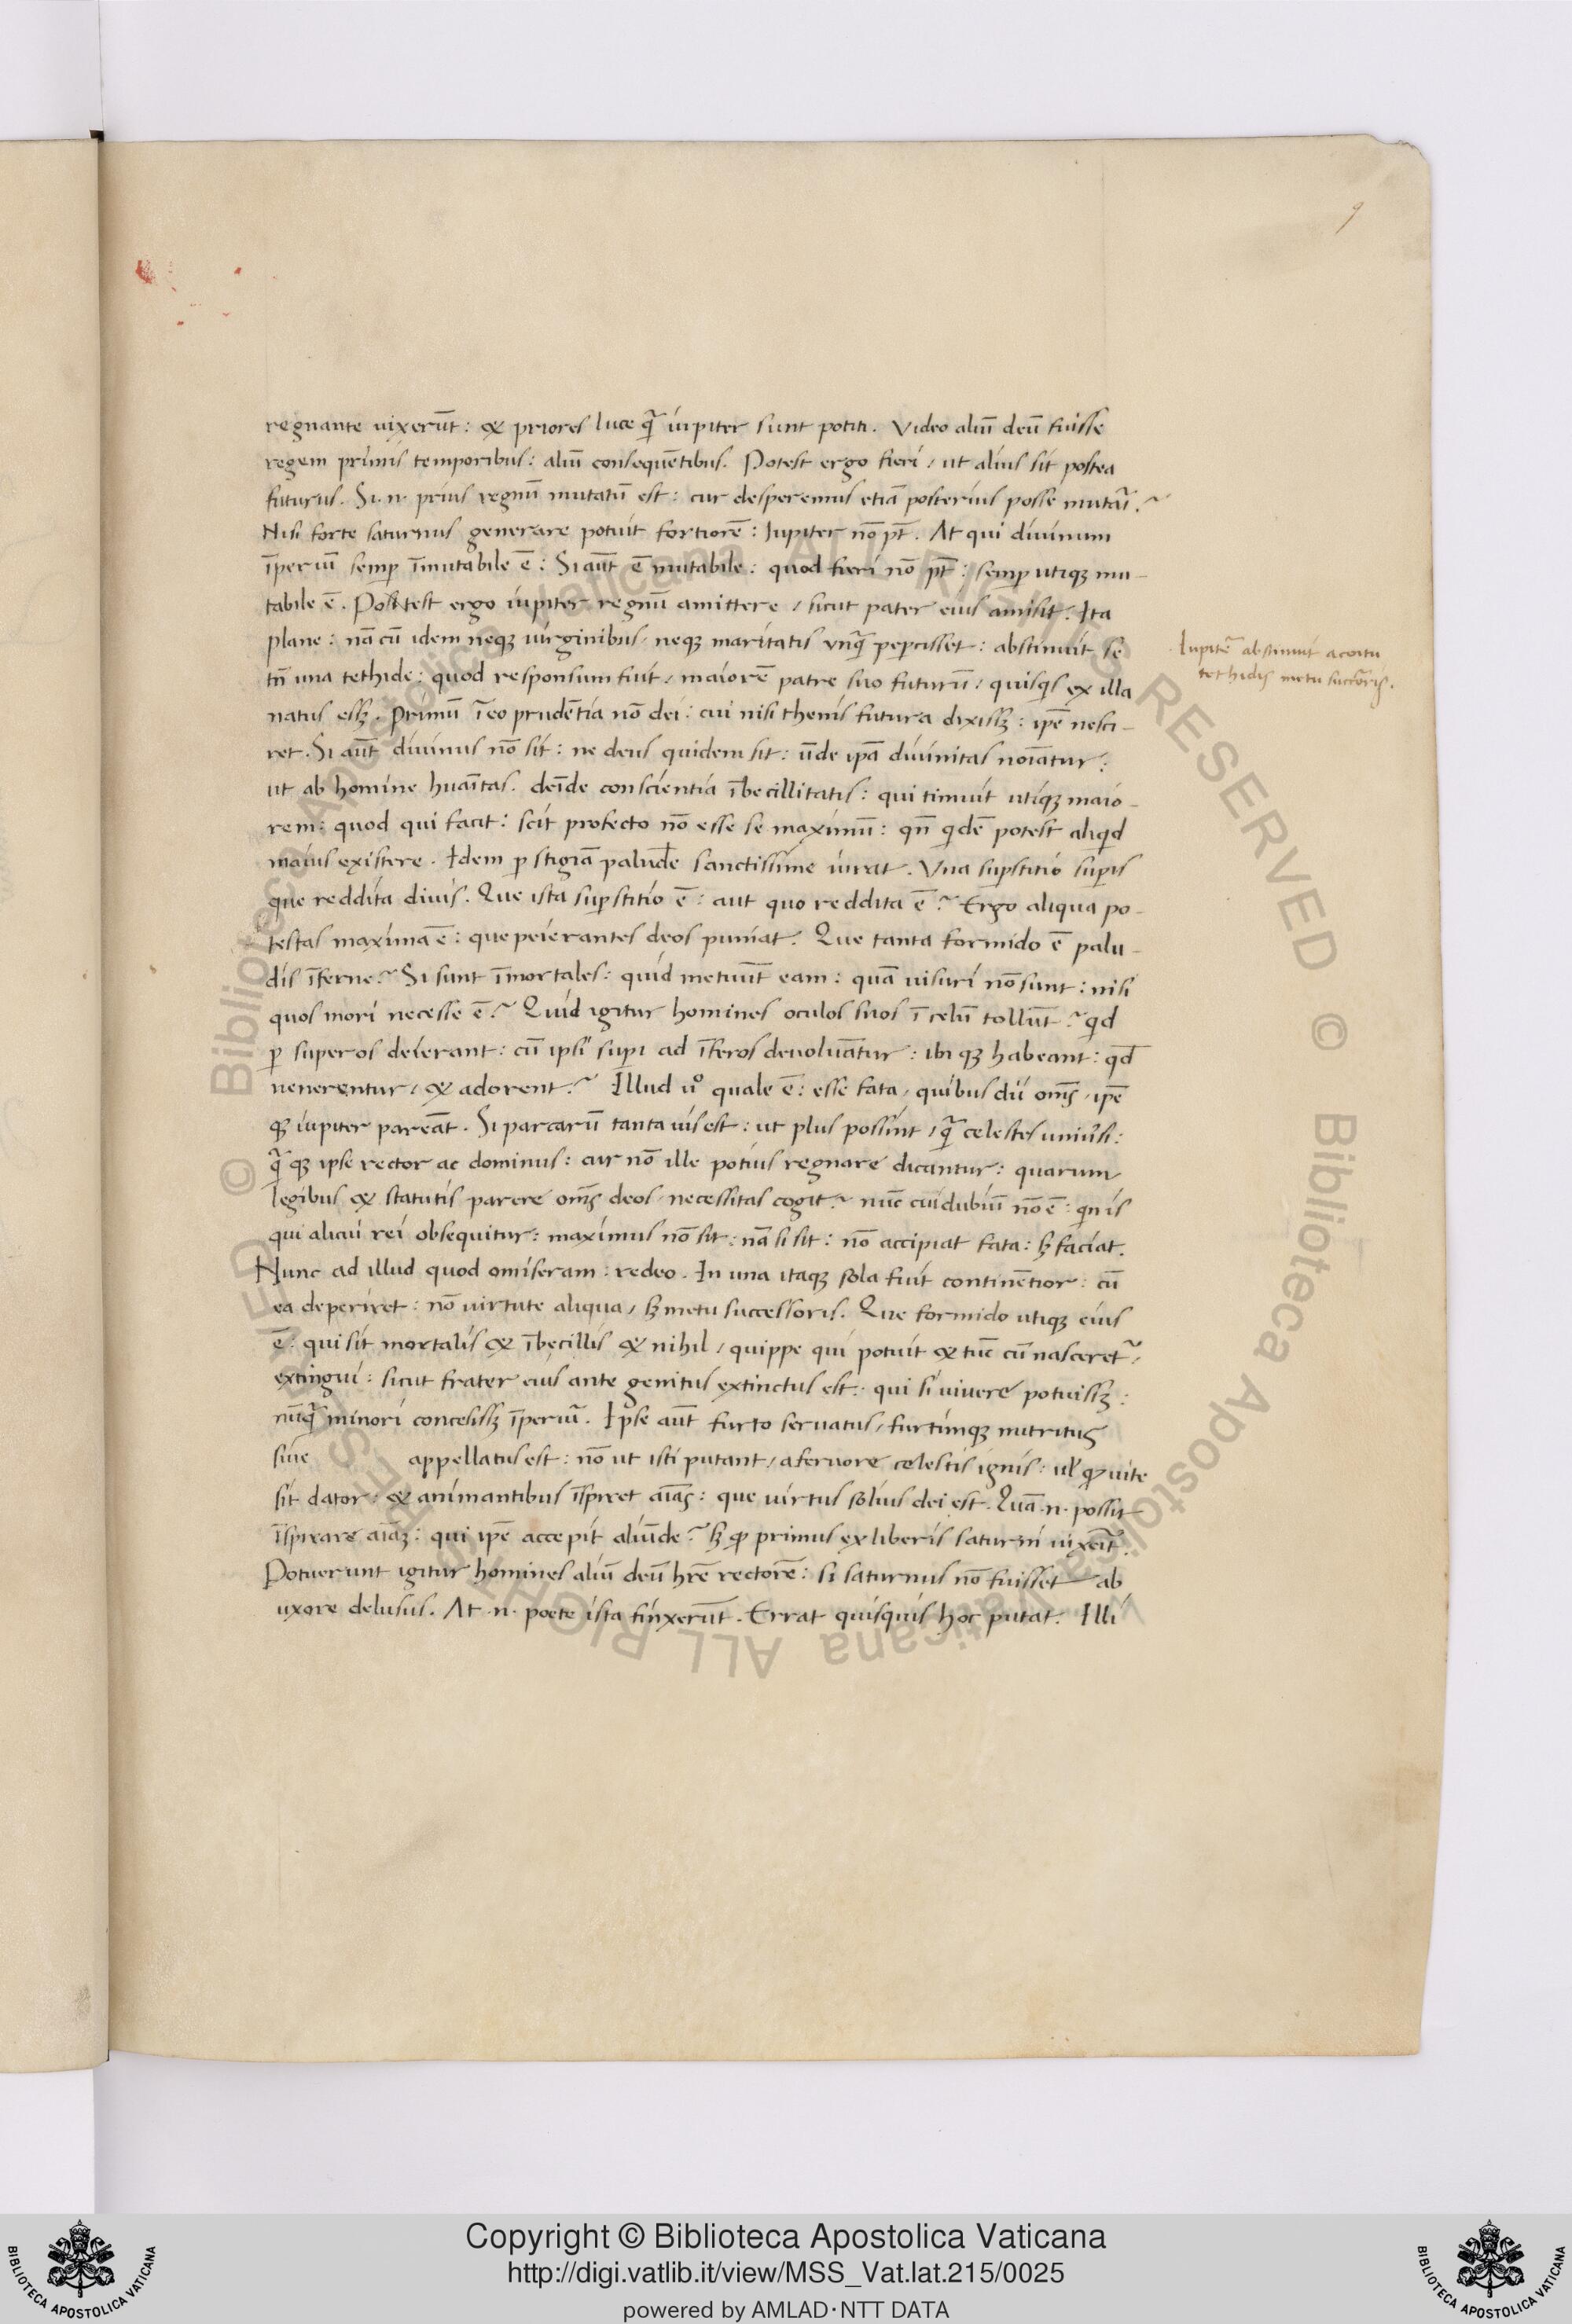 9
regnante uixerūt: & priores luce q̄ iupiter sunt potiti. Video aliū deū fuisse
regem primis temporibus: aliū consequētibus. Potest ergo fieri / ut alius sit postea
futurus. Si .n. prius regnū mutatū est: cur desperemus etiā posterius posse mutāi.~
Nisi forte saturnus generare potuit fortiorē: Iupiter nō pt̄. At qui diuinum
īperiū semꝑ īmutabile ē: Si aūt ē mutabile: quod fieri nō pt̄: semꝑ utiqꝫ mu-
tabile ē. Postest ergo iupiter regnū amittere / sicut pater eius amisit. Ita
plane: nā cū idem neqꝫ uirginibus / neqꝫ maritatis unq̄ pepercisset: abstinuit se
tn̄ una tethide: quod responsum fuit / maiorē patre suo futurū / quisq̇s ex illa
natus essꝫ. Primū ī eo prudētia nō dei: cui nisi themis futura dixissꝫ: ip̄e nesci-
ret. Si aūt diuinus nō sit: ne deus quidem sit: ūde ip̄a diuinitas noīatur:
ut ab homine huaītas. deīde conscientia ībecillitatis: qui timuit utiqꝫ maio-
rem: quod qui facit: scit profecto nō esse se maximū: qn̄ q̇dē potest aliq̇d
maius existere. Idem ꝑ stigiā paludē sanctissime iurat. Vna suꝑstitio suꝑis
que reddita diuis. Que ista suꝑstitio ē: aut quo reddita ē~ Ergo aliqua po-
testas maxima ē: que peierantes deos puniat. Que tanta formido ē palu-
dis īferne~ Si sunt īmortales: quid metuūt eam: quā uisuri nō sunt: nisi
quos mori necesse ē~ Quid igitur homines oculos suos ī celū tollūt~ q̇d
ꝑ superos deierant: cū ipsi suꝑi ad īferos deuoluātur: ibi qꝫ habeant: qd̄
uenerentur / & adorent~ Illud u̇o quale ē: esse fata / quibus dii om̄s / ip̄e
qꝫ iupiter pareāt. Si parcarū tanta uis est: ut plus possint / q̄ celestes uniu̇si:
q̄ qꝫ ipse rector ac dominus: cur nō ille potius regnare dicantur: quarum
legibus & statutis parere om̄s deos necessitas cogit~ nūc cui dubiū nō ē: qn̄ is
qui alicui rei obsequitur: maximus nō sit: nā si sit: nō accipiat fata: sꝫ faciat.
Nunc ad illud quod omiseram: redeo. In una itaqꝫ sola fuit continētior: cū
ea deperiret: nō uirtute aliqua / sꝫ metu successoris. Que formido utiqꝫ eius
ē: qui sit mortalis & ībecillis & nihil / quippe qui potuit & tūc cū nasceret~ /
extingui: sicut frater eius ante genitus extinctus est: qui si uiuere potuissꝫ:
nūq̄ minori concesissꝫ īperiū. Ipse aūt furto seruatus / furtimqꝫ nutritus
siue appellatus est: nō ut isti putant / a feruore celestis ignis: ul̄ ꝙ uite
sit dator: & animantibus īspiret aīas: que uirtus solius dei est. Quā .n. possit
īspirare aīaꝫ: qui ip̄e accepit aliūde~ sꝫ ꝙ primus ex liberis saturni uixeīt.
Potuerunt igitur homines aliū deū hr̄e rectorē: si saturnus nō fuisset ab
uxore delusus. At .n. poete ista finxerūt. Errat quisquis hoc putat. Illi
Iupitē abstinuit a coitu
tethidis metu succ̄oris.
Copyright © Biblioteca Apostolica Vaticana
http://digi.vatlib.it/view/MSS_Vat.lat.215/0025
powered by AMLAD·NTT DATA
BIBLIOTECA APOSTOLICA VATICANA
BIBLIOTECA APOSTOLICA VATICANA
© Biblioteca Apostolica Vaticana ALL RIGHTS RESERVED © Biblioteca Apostolica Vaticana ALL RIGHTS RESERVED